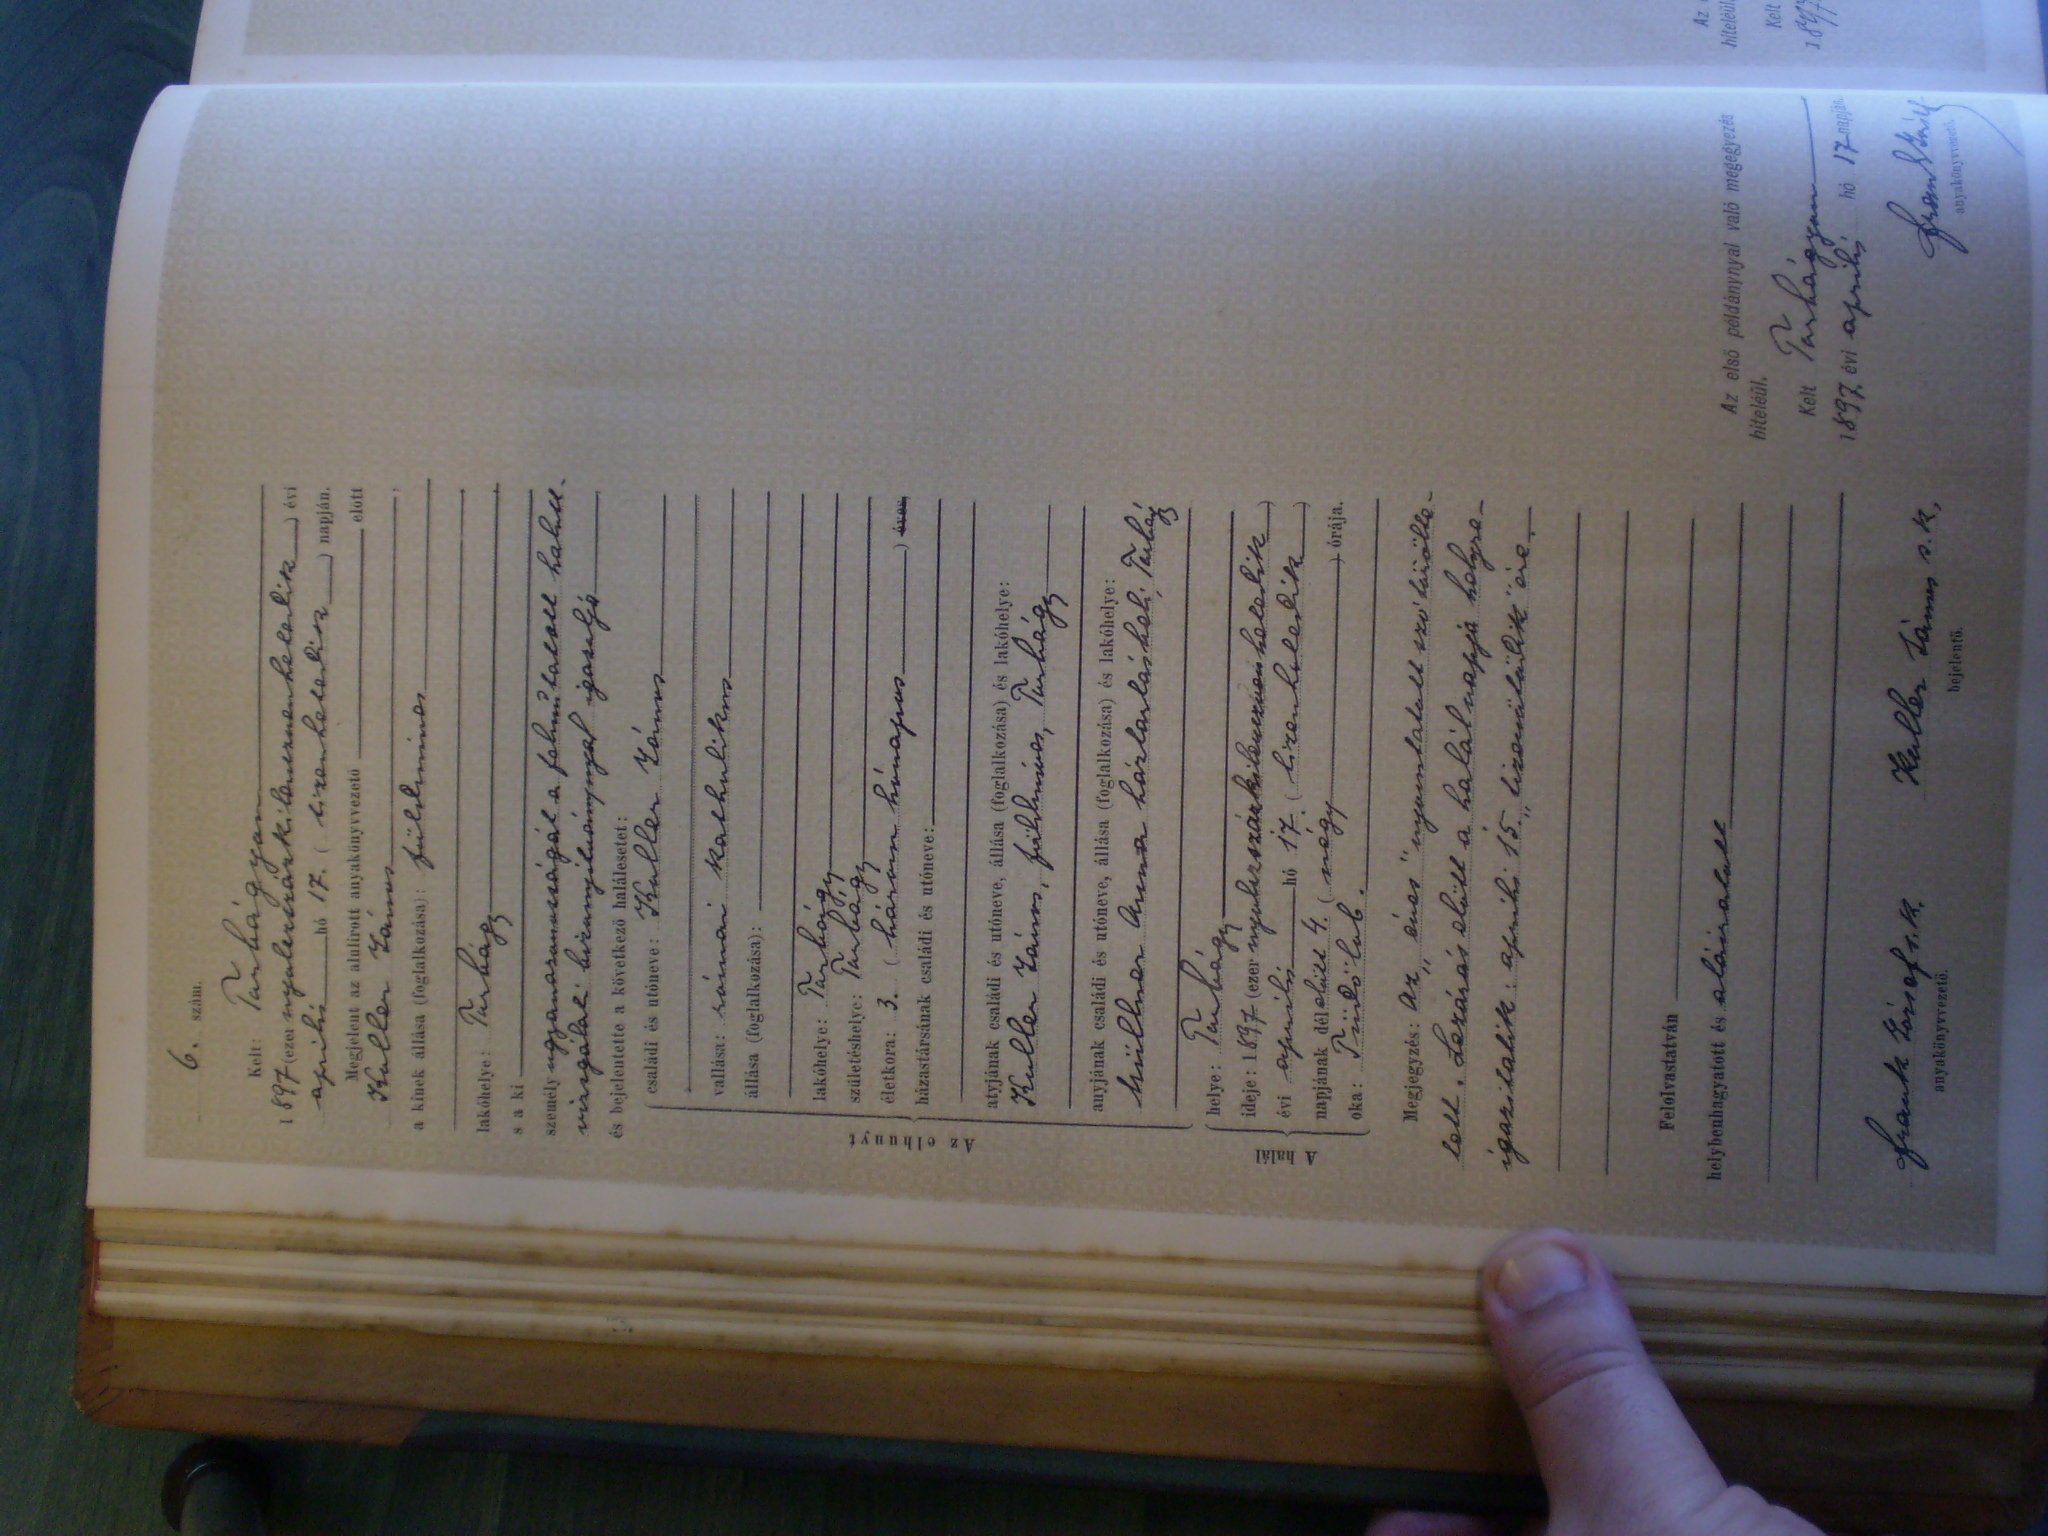 6. szám.
Kelt: Tarhágyan
1897 (ezer nyolcszázkilencvenhetedik) évi
április hó 17. (tizenhetedik) napján.
Megjelent az alulirott anyakönyvvezető előtt
Kuller János
a kinek állása (foglalkozása): földmives
lakóhelye: Tarhágy
s a ki
személy ugyanazonosságát a felmutatott
vizsgálati bizonyítvánnyal igazolja
és bejelentette a következő halálesetet:
Az elhunyt
családi és utóneve: Kuller János
vallása: római katholikus
állása (foglalkozása):
lakóhelye: Tarhágy
születéshelye: Tarhágy
életkora: 3. (három hónapos) éves
házastársának családi és utóneve:
atyjának családi és utóneve, állása (foglalkozása) és lakóhelye:
Kuller János, földmives, Tarhágy
anyjának családi és utóneve, állása (foglalkozása) és lakóhelye:
Müllner Anna háztartásbeli, Tarhágy
A halál
helye: Tarhágy
ideje: 1897 (ezer nyolcszázkilencvenhetedik)
évi április hó 17. (tizenhetedik)
napjának délelőtt 4. (négy) órája.
oka: Tüdőlob.
Megjegyzés: Az „éves" nyomtatott szó törölte-
tett. Lezárás előtt a halál napja helyre-
igazítatik: április 15. „tizenötödik"-ére
Felolvastatván
helybenhagyatott és aláíratott
Frank József s.k.
anyakönyvvezető.
Kuller János s.k.
bejelentő.
Az első példánynyal való megegyezés
hiteléül.
Kelt Tarhágyan
1897. évi április hó 17 napján.
anyakönyvvezető.
hiteléül.
Kelt
1897